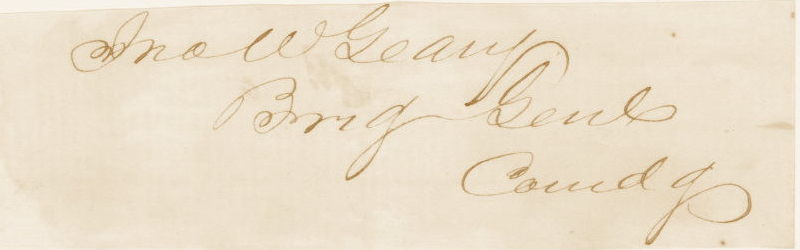 Jno W Geary
Brig Genl
Comdg